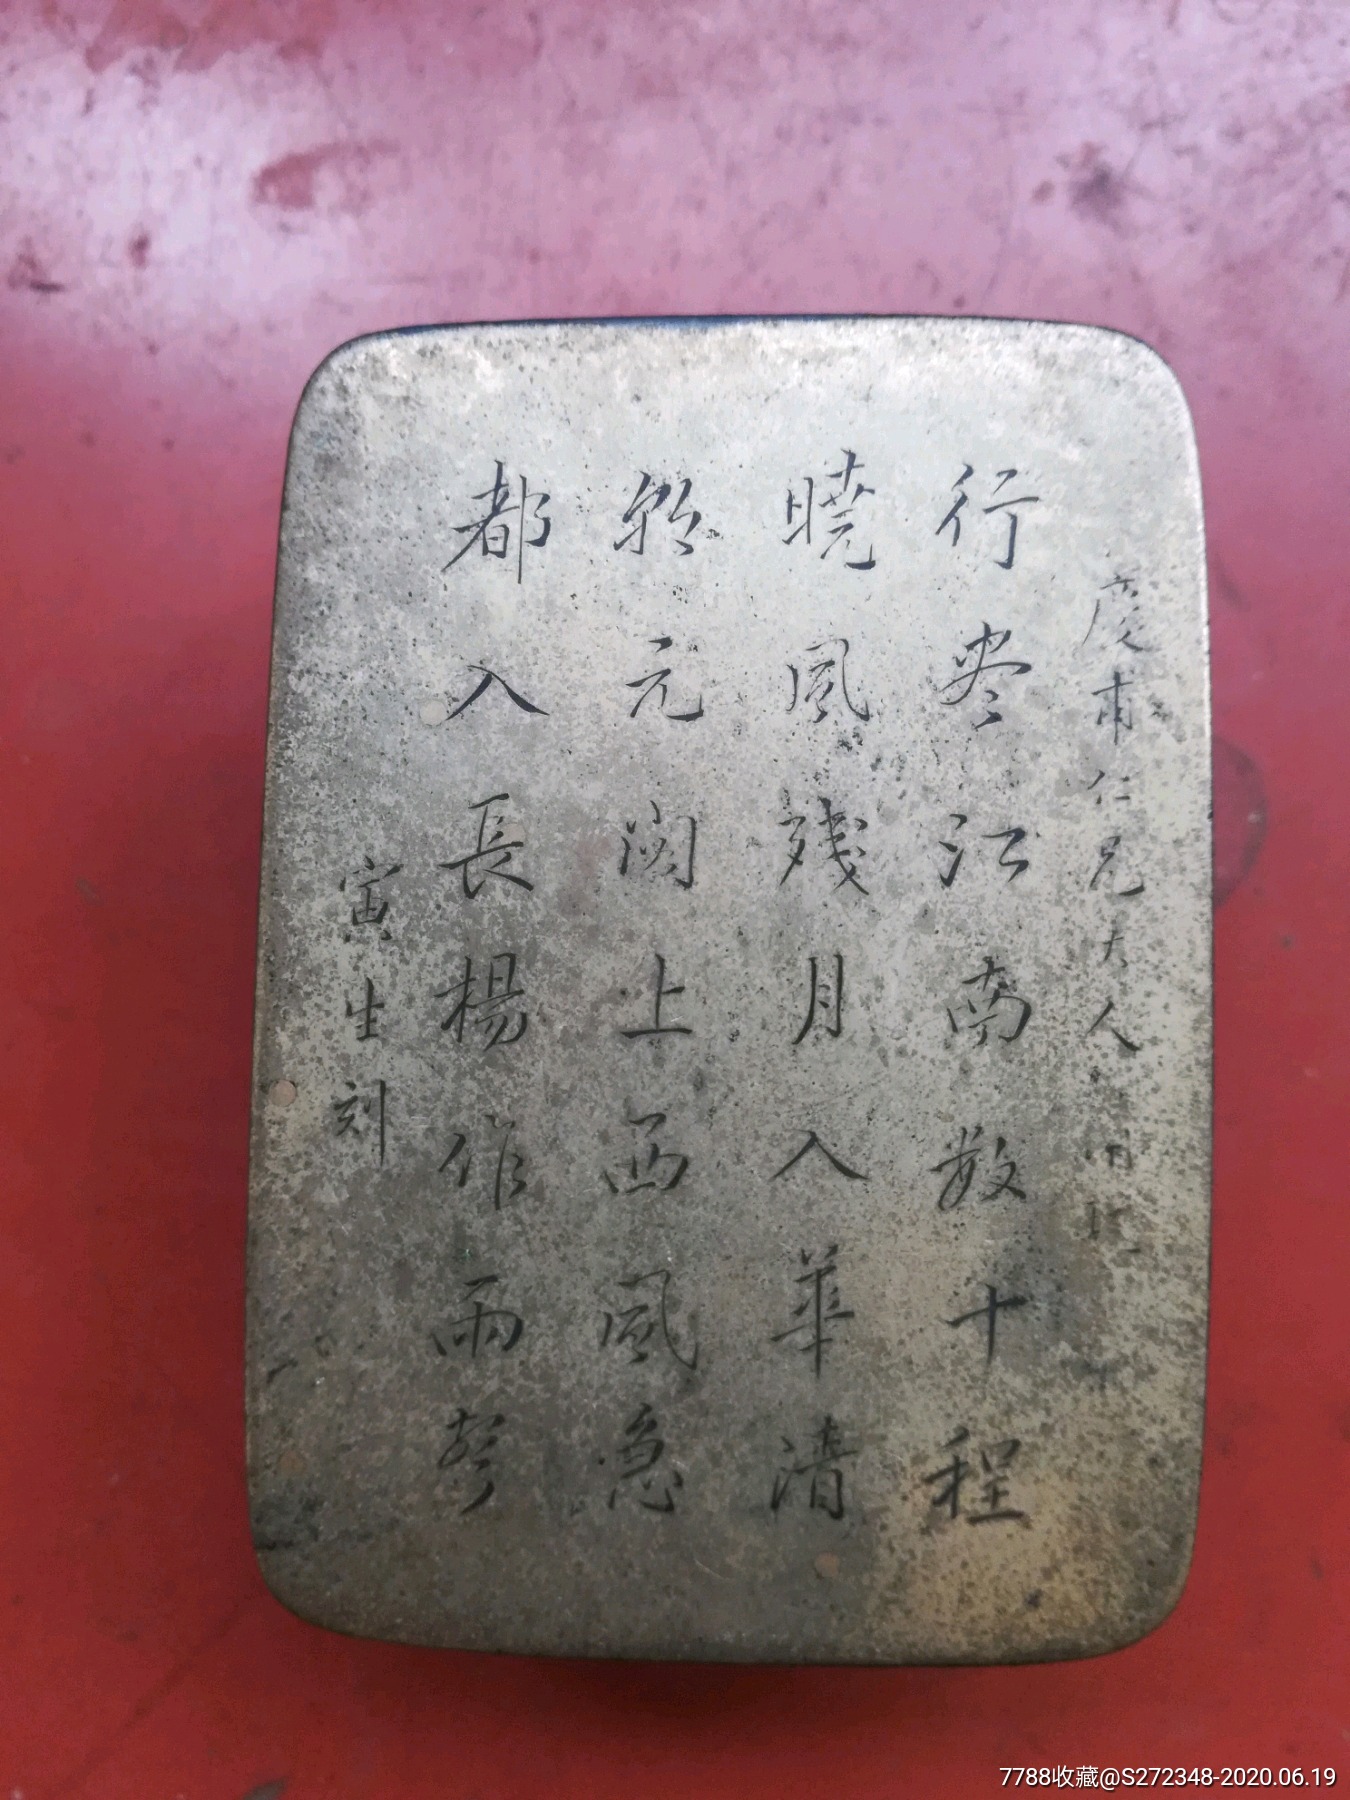 慶甫仁兄大人
行尽江南数十程
曉風殘月入華清
朝元阁上西風急
都入長楊作雨聲
寅生刻
7788收藏@S272348-2020.06.19